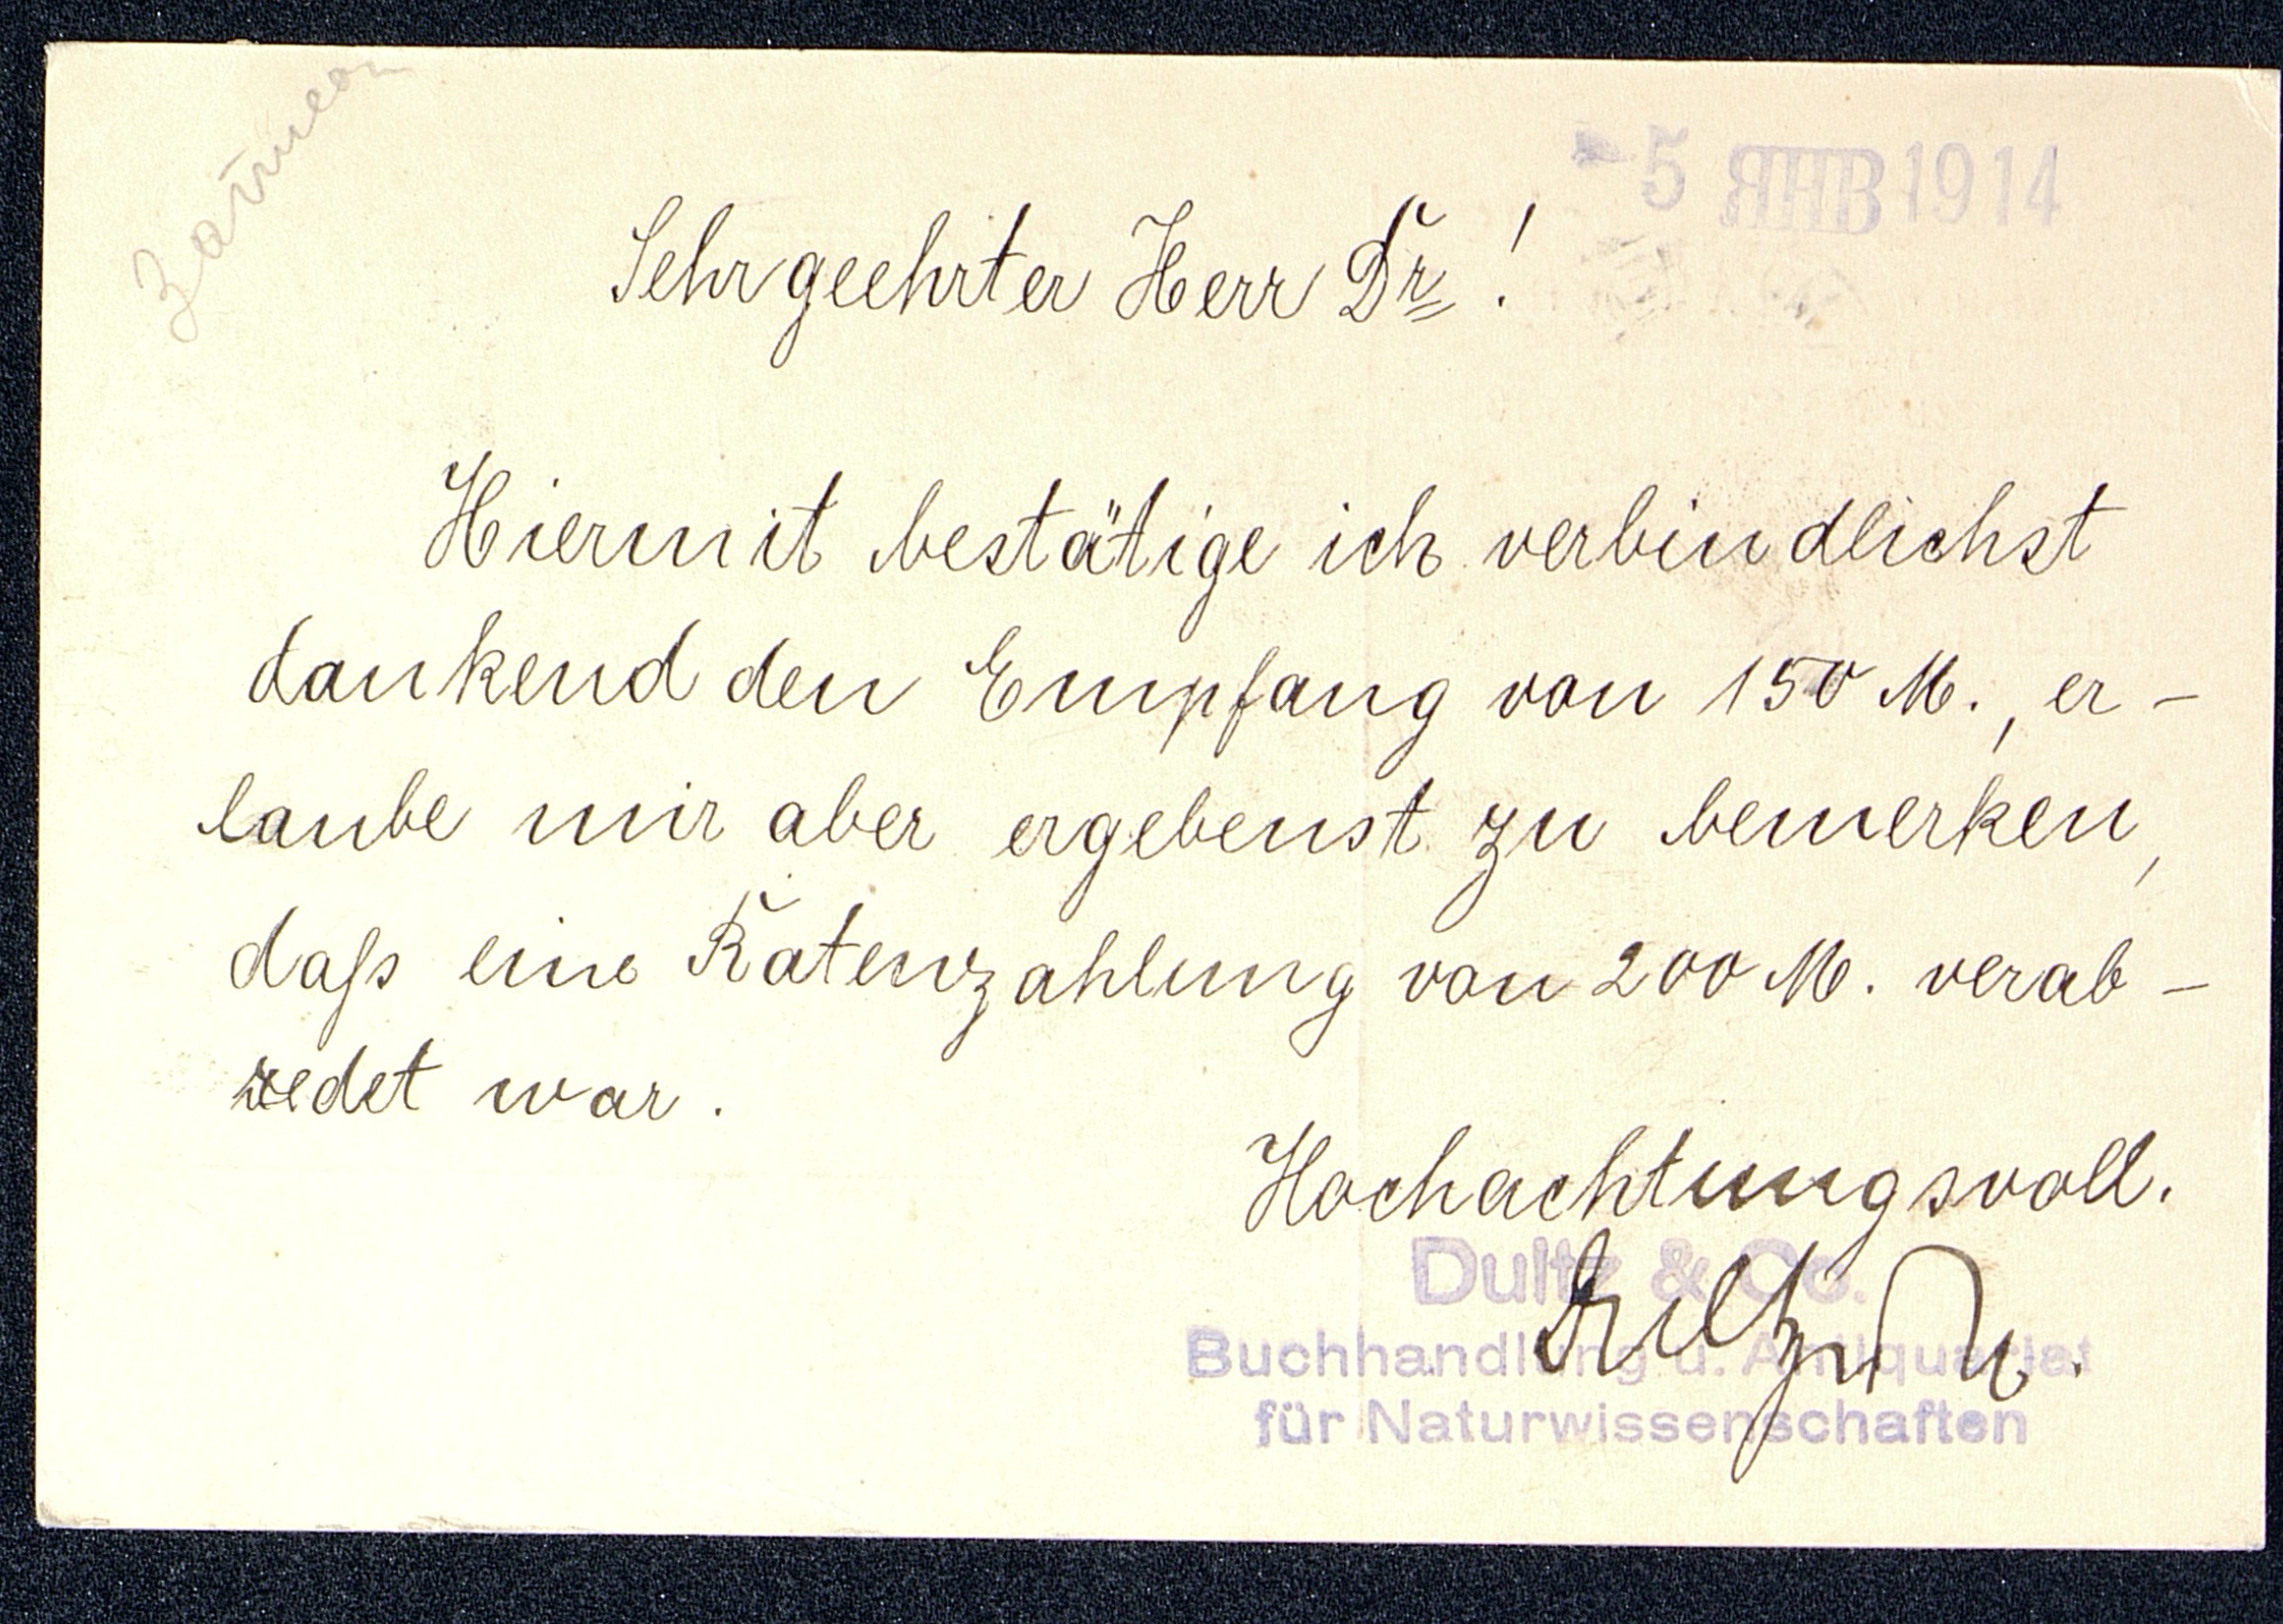 - 5 ЯНВ 1914
Sehr geehrter Herr Dr !
Hiermit bestätige ich verbindlichst
dankend den Empfang von 150 M., er-
laube mir aber ergebenst zu bemerken,
daſs eine Ratenzahlung von 200 M. verab-
redet war.
Hochachtungsvoll.
Dultz & Co.
Buchhandlung u. Antiquariat
für Naturwissenschaften